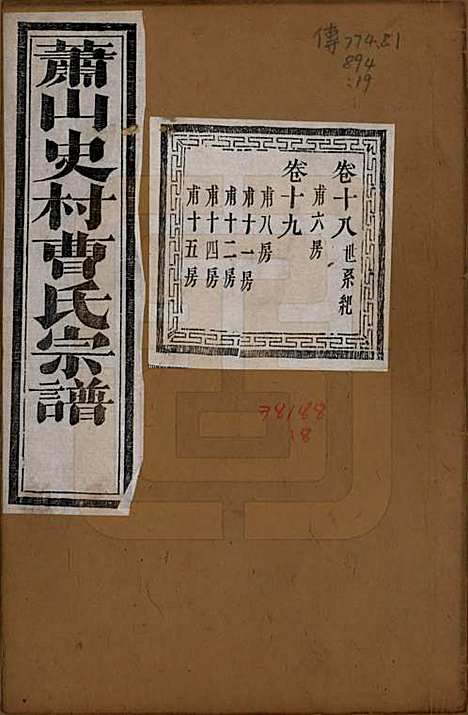 蕭山史村曹氏宗譜
卷十八世系紀
甫六房
卷十九
甫八房
甫十一房
甫十二房
甫十四房
甫十五房
傳774.81
894
:19